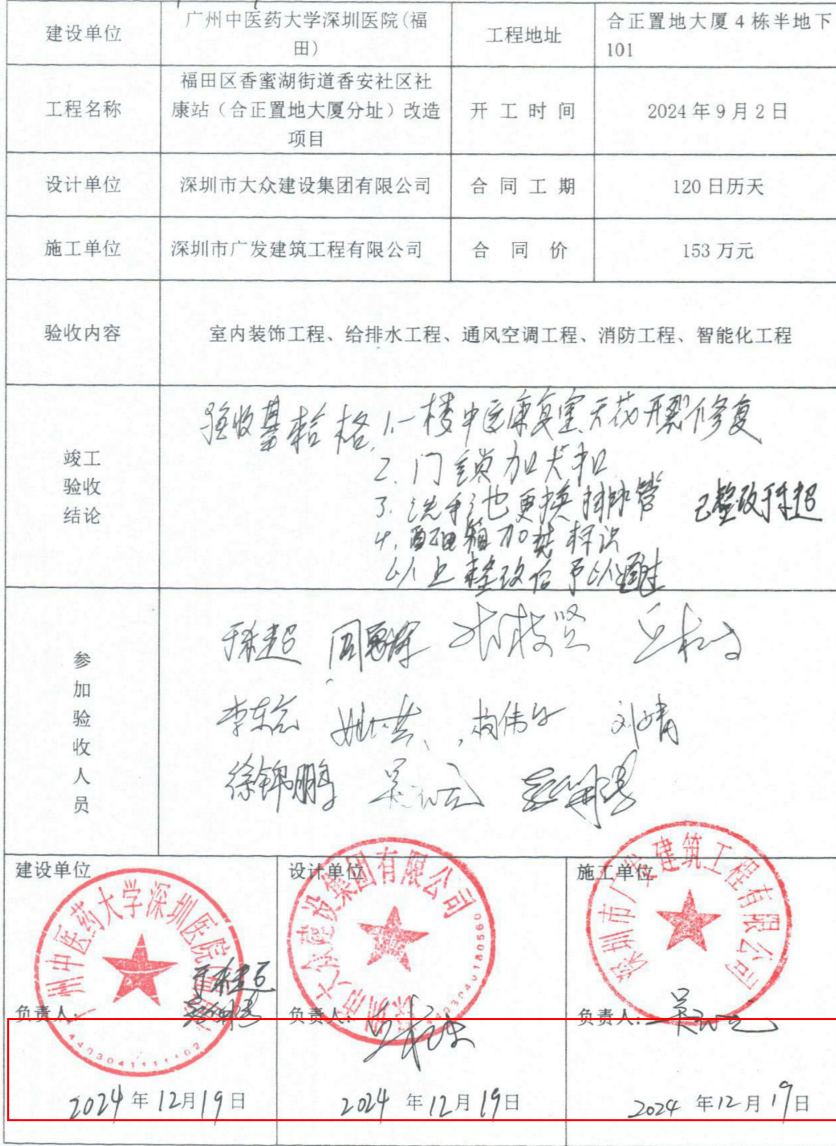 建设单位
广州中医药大学深圳医院(福
田)
工程地址
合正置地大厦 4 栋半地下
101
工程名称
福田区香蜜湖街道香安社区社
康站（合正置地大厦分址）改造
项目
开工时间
2024年9月2日
设计单位
深圳市大众建设集团有限公司
合同工期
120日历天
施工单位
深圳市广发建筑工程有限公司
合同价
153万元
验收内容
室内装饰工程、给排水工程、通风空调工程、消防工程、智能化工程
竣工
验收
结论
验收基本合格 1.一楼中医康复室天花开裂修复
2.门锁加犬扣
3.洗手池更换排水管
已整改
4.配电箱加装标识
以上整改后予以通过
参
加
验
收
人
员
李东
刘晴
徐锦鹏
建设单位
广州中医药大学深圳医院
负责人:
4403041111102
2024年12月19日
设计单位
深圳市大众建设集团有限公司
负责人:
2024年12月19日
施工单位
深圳市广发建筑工程有限公司
负责人:
2024年12月19日